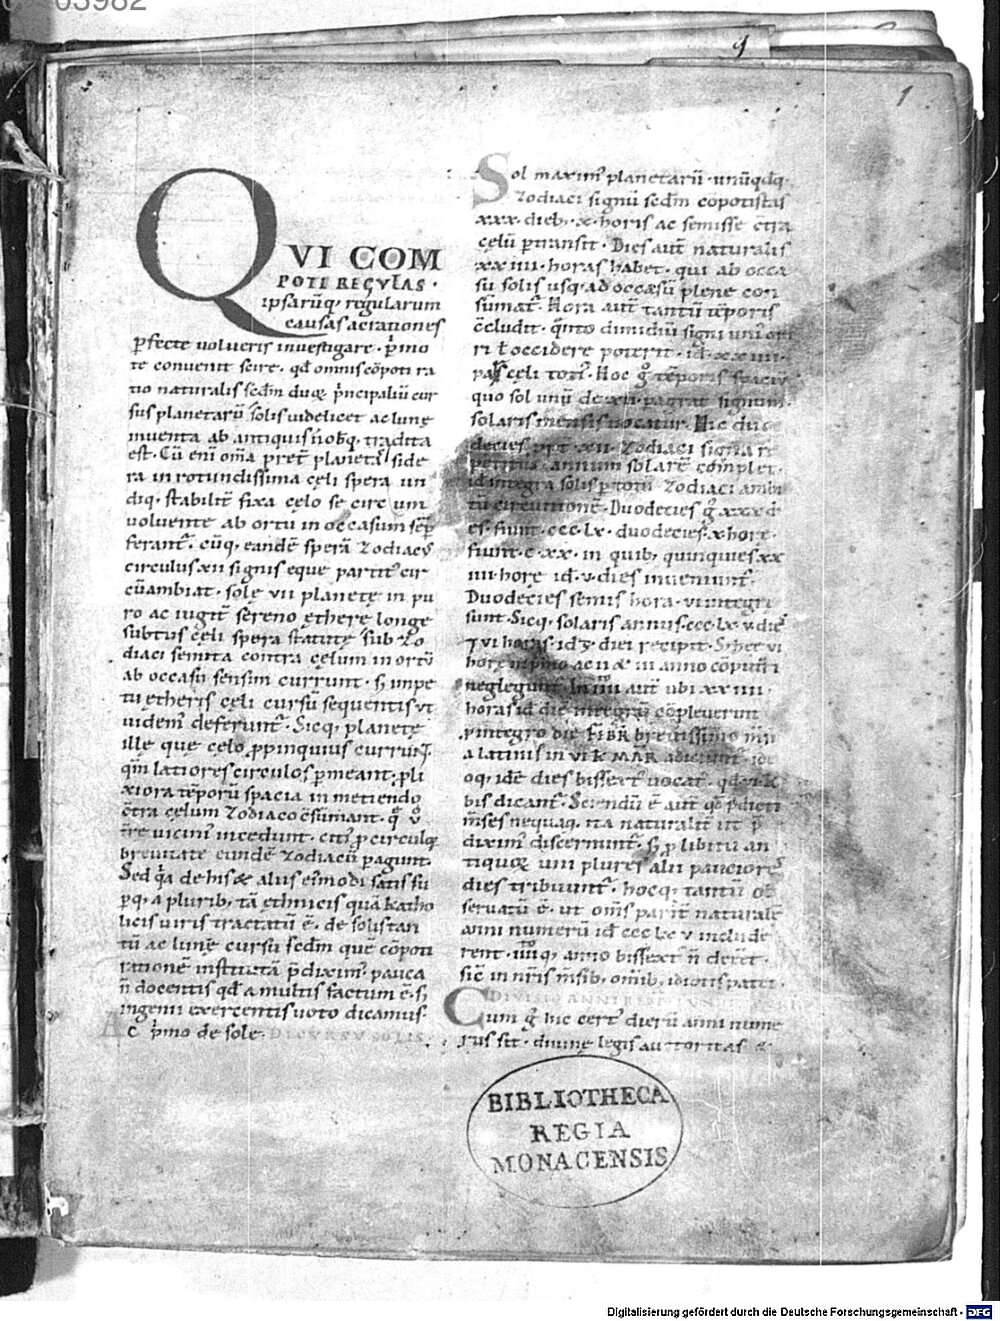 9
1
QVI COM
POTI REGVLAS ·
ipsarūq; regularum
causas ac rationes
pfecte uolueris inuestigare · pmo
te conuenit scire · qd omnis cōpoti ra
tio naturalis scdm duoꝝ pncipaliū cur
sus planetarū solis uidelicet ac lune
inuenta ab antiquis nobꝗ tradita
est · Cū eni oma pret planetas side
ra in rotundissima cęli spera un
diq; stabilit fixa celo se circ um
uoluente ab ortu in occasum semp
ferant · cūq; eandē sperā Zodiacꝰ
circulus xii signis eque partitꝰ cir
cūambiat · sole vii planete in pu
ro ac iugit sereno ęthere longe
subtus cęli spera statutę sub Zo
diaci semita contra cęlum in ortū
ab occasu sensim currunt · s; impe
tu ętheris cęli cursū sequentis vt
uidem deferunt · Sicq; planetę
ille que celo ppinquius currunt
qm latiores circulos pmeant · pli
xiora tēporū spacia in metiendo
ctra cęlum Zodiaco csumant · q̄ ů
tre vicinꝰ incedunt · citiꝰ p circulꝗ
breuitate eundē Zodiacū pagunt ·
Sed qa de his & aliis eimodi satis su
pq; a plurib; tā ęthnicis quā katho
licis uiris tractatū ē · de solis tan
tū ac lunę cursu scdm quē cōpoti
rationē institutā pdiximꝰ pauca
n̄ docentis qd a multis factum ē · s;
ingenii exercentis uoto dicamus ·
Ac pmo de sole · DE CVRSV SOLIS ·
Sol maximꝰ planetarū · unūqdq;
Zodiaci signū scdm cōpotistas
xxx · dieb; · x · horis ac semisse ctra
cęlū ptransit · Dies aut naturalis
xxiiii · horas habet · qui ab occa
su solis usq; ad occasū plene con
sūmat · Hora aut tantū tēporis
ccludit · qnto dimidiū signi uniꝰ ori
ri ł occidere poterit · id · xxiiii ·
pars cęli totiꝰ · Hoc g tēporis spaciū
quo sol unū de xii · pagrat signum ·
solaris mensis uocatur · Hic duo
decies ptit · xii · Zodiaci signa re
petitus annum solarē complet ·
id integra solis p totū Zodiaci ambi
tū circuitionē · Duodecies g xxx di
es · fiunt · ccc · lx · duodecies · x · hore ·
fiunt · c · xx · in quib; quinquies xx
iiii · hore id · v · dies inueniunt ·
Duodecies semis hora · vi integre
sunt · Sicq; solaris annus · ccc · lx · v · dies
⁊ vi horas · id diei recipit · S; hec vi
hore in pmo ac ii & iii anno cōputi
neglegunt · In iiii aut ubi xxiiii ·
horas id die integrū cōpleuerint
p integro die FEBR breuissimo mii
a latinis in vi k MAR adiciunt · ide
oq; idē dies bissextꝰ uocat · qd vi k
bis dicant · Sciendū ē aut qd pdicti
mses nequaq; ita naturalit ut p
diximꝰ discernunt · s; p libitu an
tiquoꝝ uni plures alii pauciores
dies tribuunt · hocq; tantū ob
seruatū ē · ut oms parit naturalē
anni numerū id ccc lx v include
rent · iiiitoq; anno bissext n̄ deeēt ·
sic in nris msib; omib; idiotis patet ·
DIVISIO ANNI
Cum g hic certꝰ dierū anni nume
rus sit · diuinę legis auctoritas &
BIBLIOTHECA
REGIA
MONACENSIS
Digitalisierung gefördert durch die Deutsche Forschungsgemeinschaft - DFG